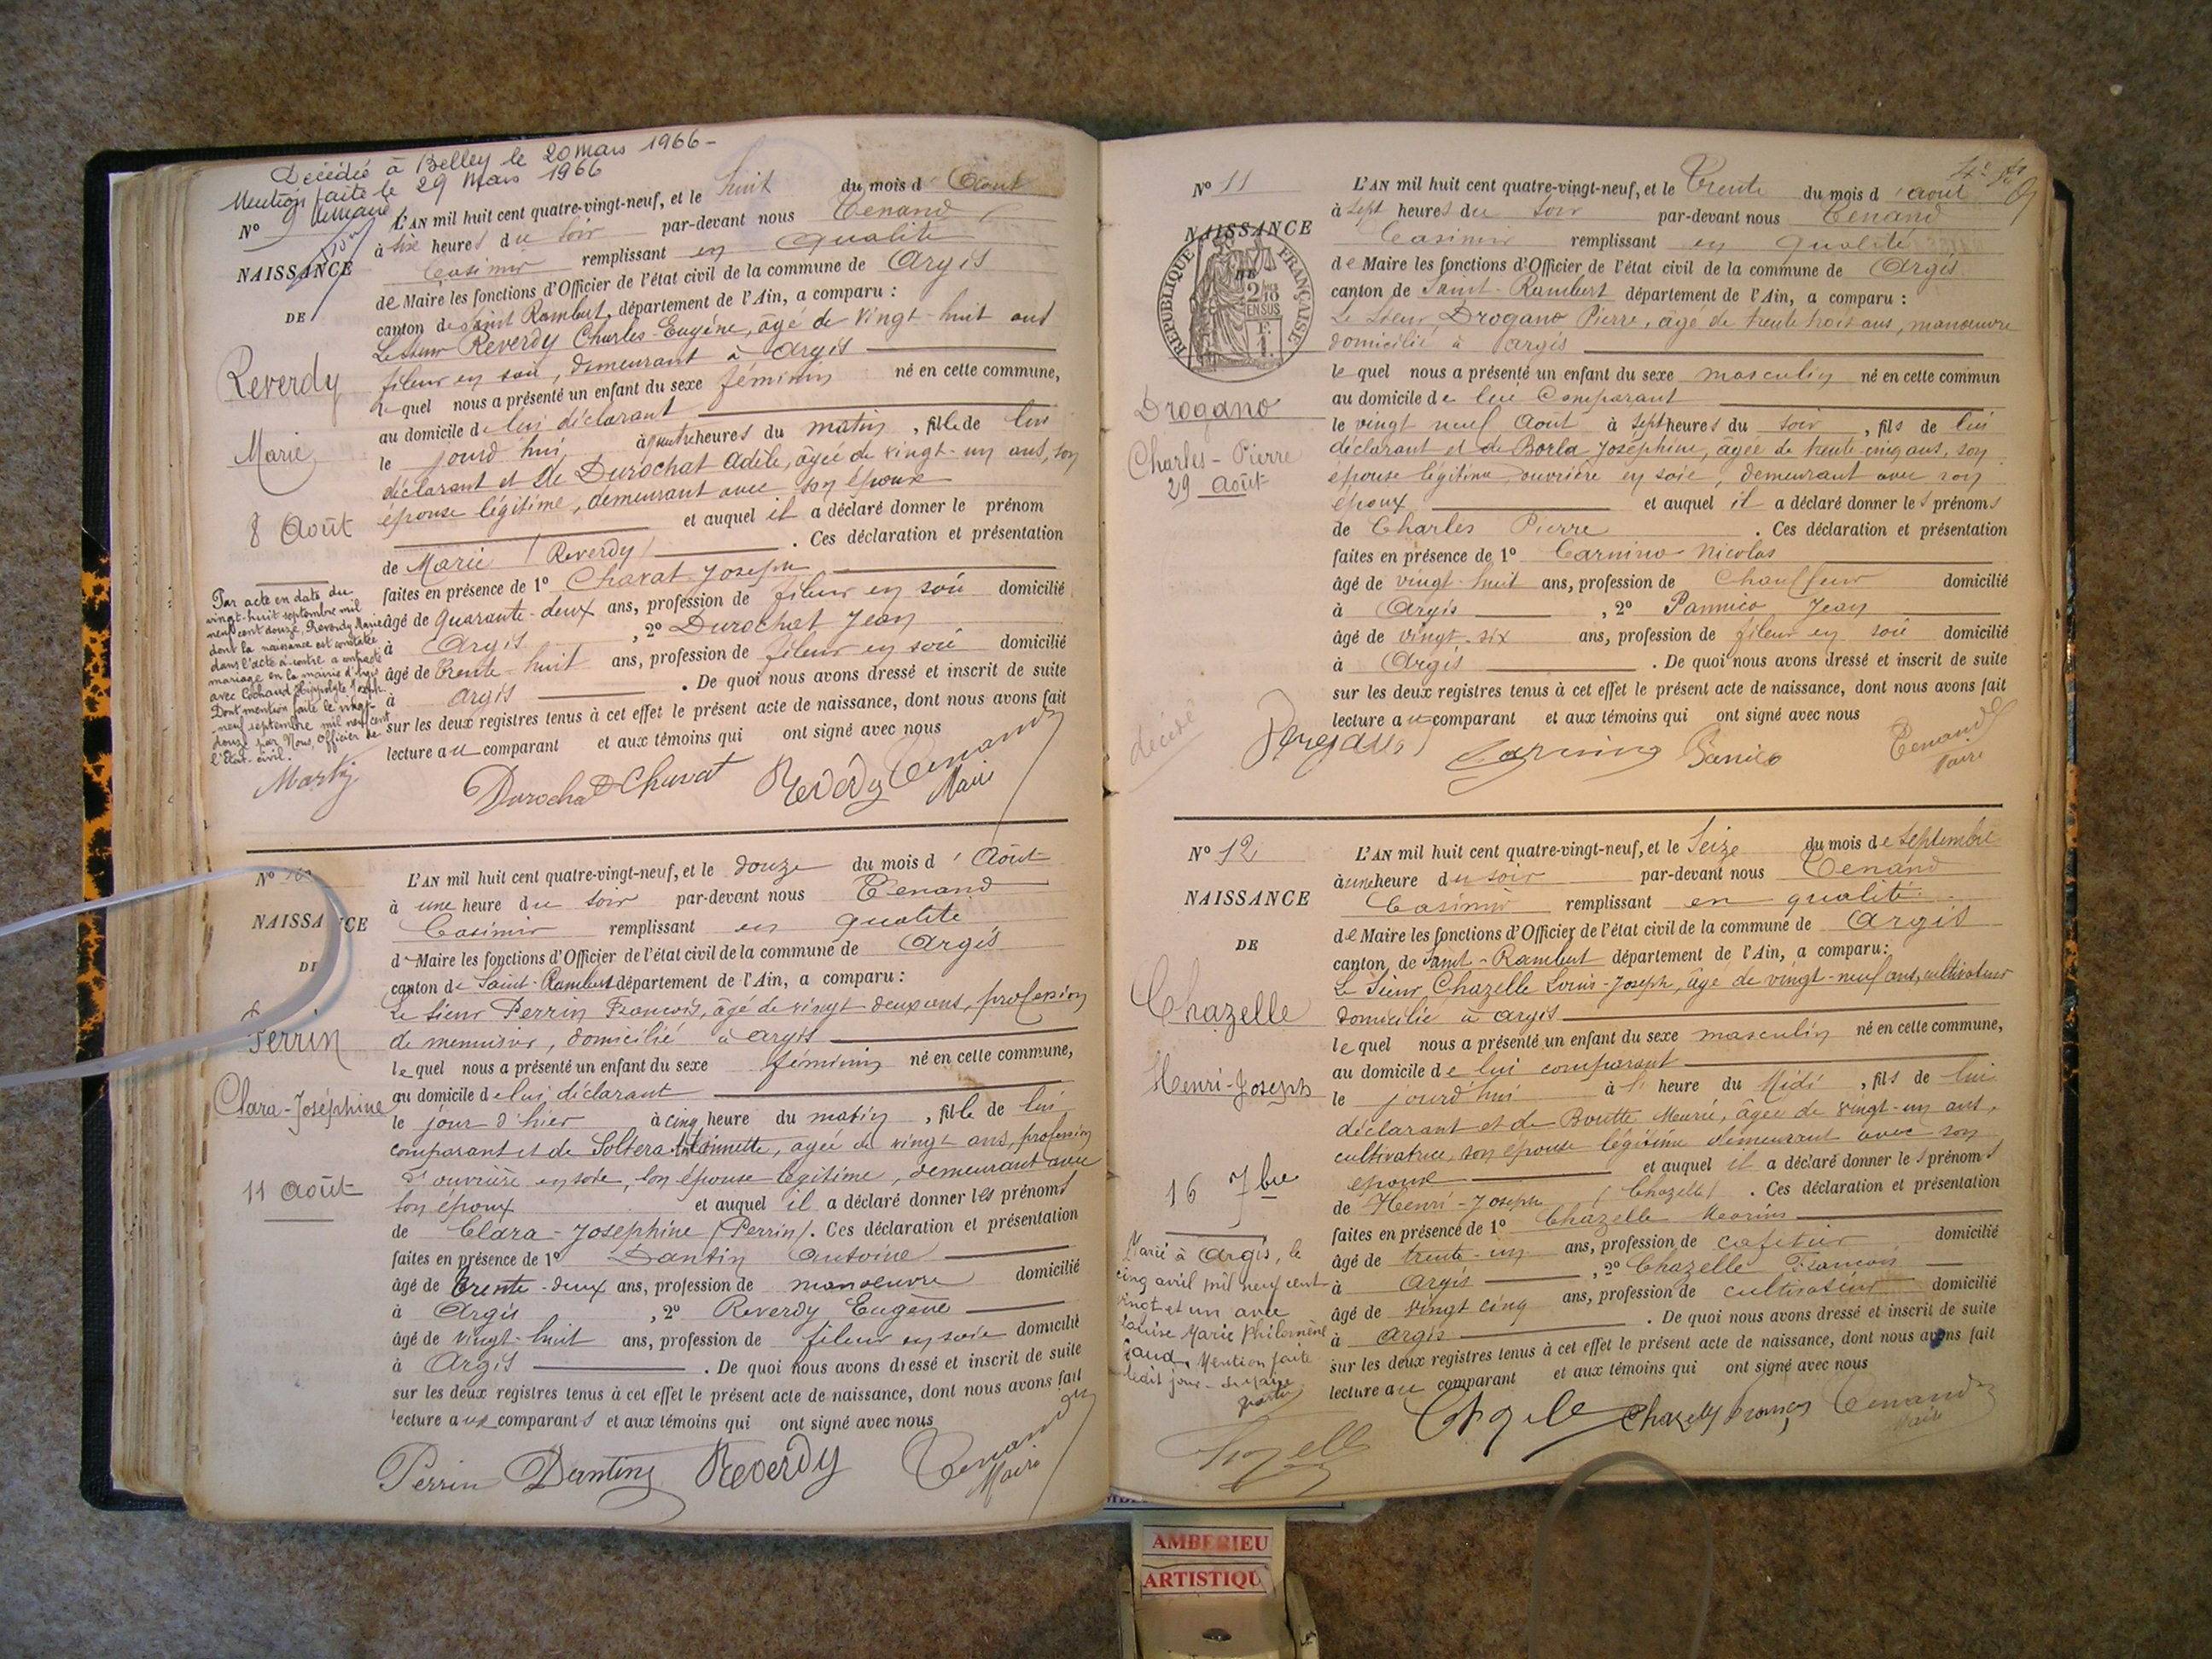 Décédée à Belley le 20 mars 1966 -
Mention faite le 29 Mars 1966
No 9
NAISSANCE
DE
Reverdy
Marie
8 Août
Par acte en date du
vingt-huit septembre mil
neuf cent douze, Reverdy Marie
dont la naissance est constatée
dans l'acte ci-contre a contracté
mariage en la mairie d'Argis
avec Cochaud Hippolyte Joseph.
Dont mention faite le vingt-
neuf septembre mil neuf cent
douze par Nous, Officier de
l'État-civil.
L'AN mil huit cent quatre-vingt-neuf, et le huit du mois d'Août
à six heures du soir par-devant nous Tenand
Casimir remplissant en qualité
de Maire les fonctions d'Officier de l'état civil de la commune de Argis
canton de Saint Rambert, département de l'Ain, a comparu :
Le sieur Reverdy Charles-Eugène, âgé de vingt-huit ans
fileur en soie, demeurant à Argis
lequel nous a présenté un enfant du sexe féminin né en cette commune,
au domicile de lui déclarant
le jourd'hui, à quatre heures du matin, fille de lui
déclarant et de Durochat Adèle, agée de vingt-un ans, son
épouse légitime, demeurant avec son époux
et auquel il a déclaré donner le prénom
de Marie (Reverdy). Ces déclaration et présentation
faites en présence de 1° Chavat Joseph
âgé de Quarante-deux ans, profession de fileur en soie domicilié
à Argis, 2° Durochat Jean
âgé de trente-huit ans, profession de fileur en soie domicilié
à Argis. De quoi nous avons dressé et inscrit de suite
sur les deux registres tenus à cet effet le présent acte de naissance, dont nous avons fait
lecture au comparant et aux témoins qui ont signé avec nous
Durochat Chavat Reverdy Tenand
Maire
No 10
NAISSANCE
DE
Perrin
Clara-Joséphine
11 Août
L'AN mil huit cent quatre-vingt-neuf, et le douze du mois d'Août
à une heure du soir par-devant nous Tenand
Casimir remplissant en qualité
de Maire les fonctions d'Officier de l'état civil de la commune de Argis
canton de Saint-Rambert département de l'Ain, a comparu :
Le sieur Perrin François, âgé de vingt deux ans, profession
de menuisier, domicilié à Argis
lequel nous a présenté un enfant du sexe féminin né en cette commune,
au domicile de lui déclarant
le jour d'hier à cinq heure du matin, fille de lui
comparant et de Soltera agée de vingt ans, profession
d'ouvrière en soie, son épouse légitime, demeurant avec
son époux et auquel il a déclaré donner les prénoms
de Clara-Joséphine (Perrin). Ces déclaration et présentation
faites en présence de 1° Dantin Antoine
âgé de trente-deux ans, profession de manoeuvre domicilié
à Argis, 2° Reverdy Eugène
âgé de vingt-huit ans, profession de fileur en soie domicilié
à Argis. De quoi nous avons dressé et inscrit de suite
sur les deux registres tenus à cet effet le présent acte de naissance, dont nous avons fait
lecture aux comparants et aux témoins qui ont signé avec nous
Perrin Dantin Reverdy Tenand
Maire
No 11
NAISSANCE
DE
RÉPUBLIQUE FRANÇAISE
Drogano
Charles-Pierre
29 Août
décédé
L'AN mil huit cent quatre-vingt-neuf, et le trente du mois d'Août
à sept heures du soir par-devant nous Tenand
Casimir remplissant en qualité
de Maire les fonctions d'Officier de l'état civil de la commune de Argis
canton de Saint-Rambert département de l'Ain, a comparu :
Le sieur Drogano Pierre, âgé de trente trois ans, manoeuvre
domicilié à Argis
lequel nous a présenté un enfant du sexe masculin né en cette commun
au domicile de lui Comparant
le vingt neuf Août à sept heures du soir, fils de lui
déclarant et de Borla Joséphine, âgée de trente cinq ans, son
épouse légitime, ouvrière en soie, demeurant avec son
époux et auquel il a déclaré donner les prénoms
de Charles Pierre. Ces déclaration et présentation
faites en présence de 1° Carnino Nicolas
âgé de vingt-huit ans, profession de Chauffeur domicilié
à Argis, 2° Pannico Jean
âgé de vingt-six ans, profession de fileur en soie domicilié
à Argis. De quoi nous avons dressé et inscrit de suite
sur les deux registres tenus à cet effet le présent acte de naissance, dont nous avons fait
lecture au comparant et aux témoins qui ont signé avec nous
Carnino Panico Tenand
Maire
No 12
NAISSANCE
DE
Chazelle
Henri-Joseph
16 7bre
Marié à Argis, le
cinq avril mil neuf cent
vingt et un avec
Louise Marie Philomène
Mention faite
ledit jour - Le Maire
L'AN mil huit cent quatre-vingt-neuf, et le Seize du mois de Septembre
à une heure du soir par-devant nous Tenand
Casimir remplissant en qualité
de Maire les fonctions d'Officier de l'état civil de la commune de Argis
canton de Saint-Rambert département de l'Ain, a comparu :
Le Sieur Chazelle Louis-Joseph, âgé de vingt-neuf ans, cultivateur
domicilié à Argis
lequel nous a présenté un enfant du sexe masculin né en cette commune,
au domicile de lui comparant
le jourd'hui à heure du Midi, fils de lui
déclarant et de Boutte Marie, âgée de vingt-un ans,
cultivatrice, son épouse légitime demeurant avec son
époux et auquel il a déclaré donner les prénoms
de Henri-Joseph (Chazelle). Ces déclaration et présentation
faites en présence de 1° Chazelle Marius
âgé de trente-un ans, profession de cafetier domicilié
à Argis, 2° Chazelle François
âgé de vingt cinq ans, profession de cultivateur domicilié
à Argis. De quoi nous avons dressé et inscrit de suite
sur les deux registres tenus à cet effet le présent acte de naissance, dont nous avons fait
lecture au comparant et aux témoins qui ont signé avec nous
Chazelle Chazelle François Tenand
Maire
AMBERIEU
ARTISTIQU